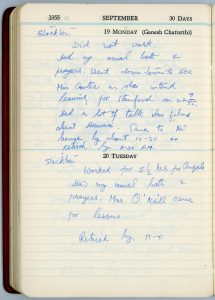 1955 SEPTEMBER 30 DAYS
Stockton 19 MONDAY (Ganesh Chaturthi)
Did not work.
Had my usual bath &
prayers. Went down town to see
Miss Carter as she intend
leaving for Stanford on 22nd
Had a lot of talk & films
about Hawaii. Came to the
house by about 10-30 &
retired by 11-30 P.M.
Stockton 20 TUESDAY
Worked for 5½ hrs. for Angelo
Had my usual bath &
prayers. Mrs O'Neill came
for lessons.
Retired by 11-0